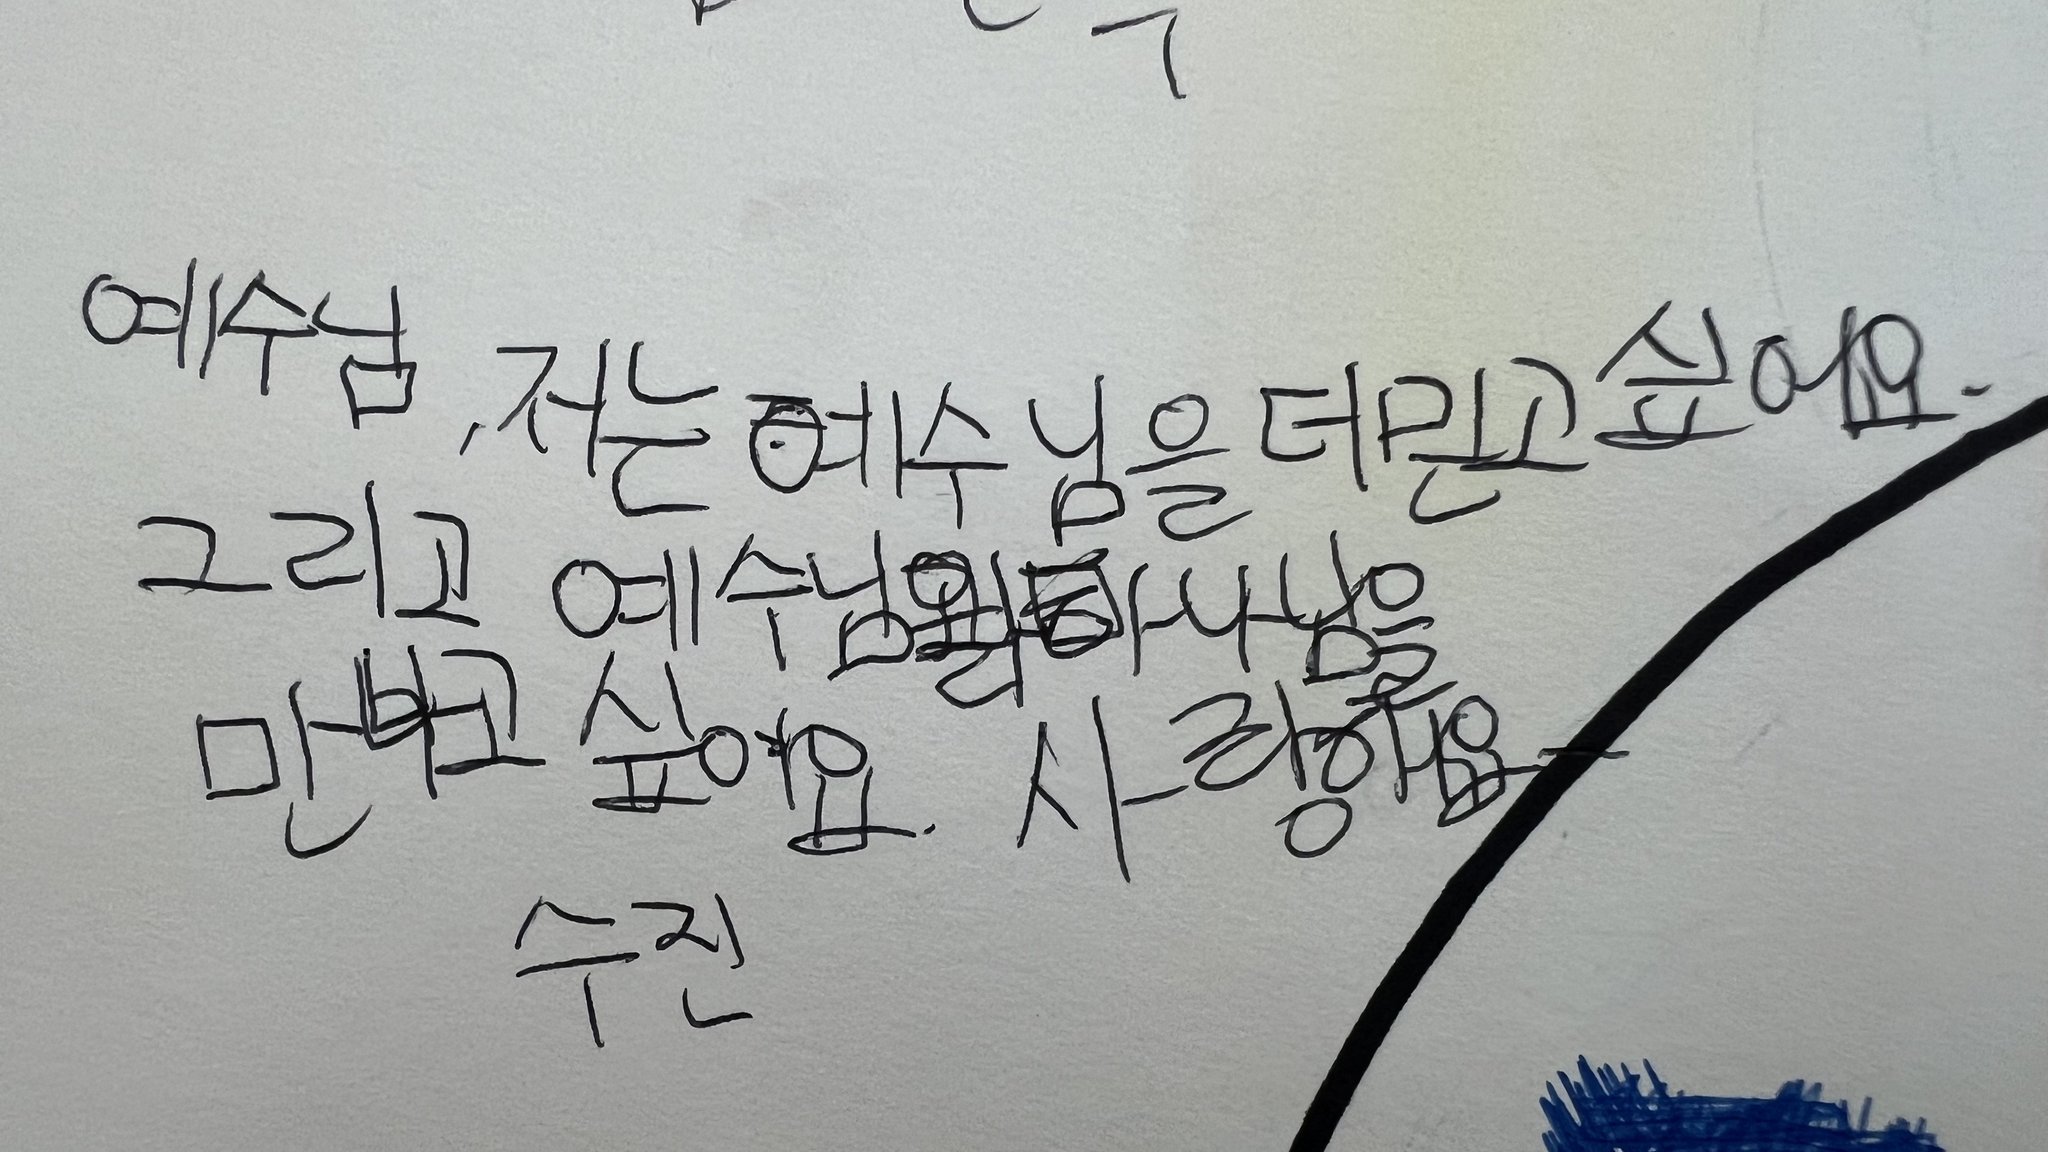 예수님, 저는 예수님을 더 믿고 싶어요.
그리고 예수님 하나님을
만나고 싶어요. 사랑해요
수진